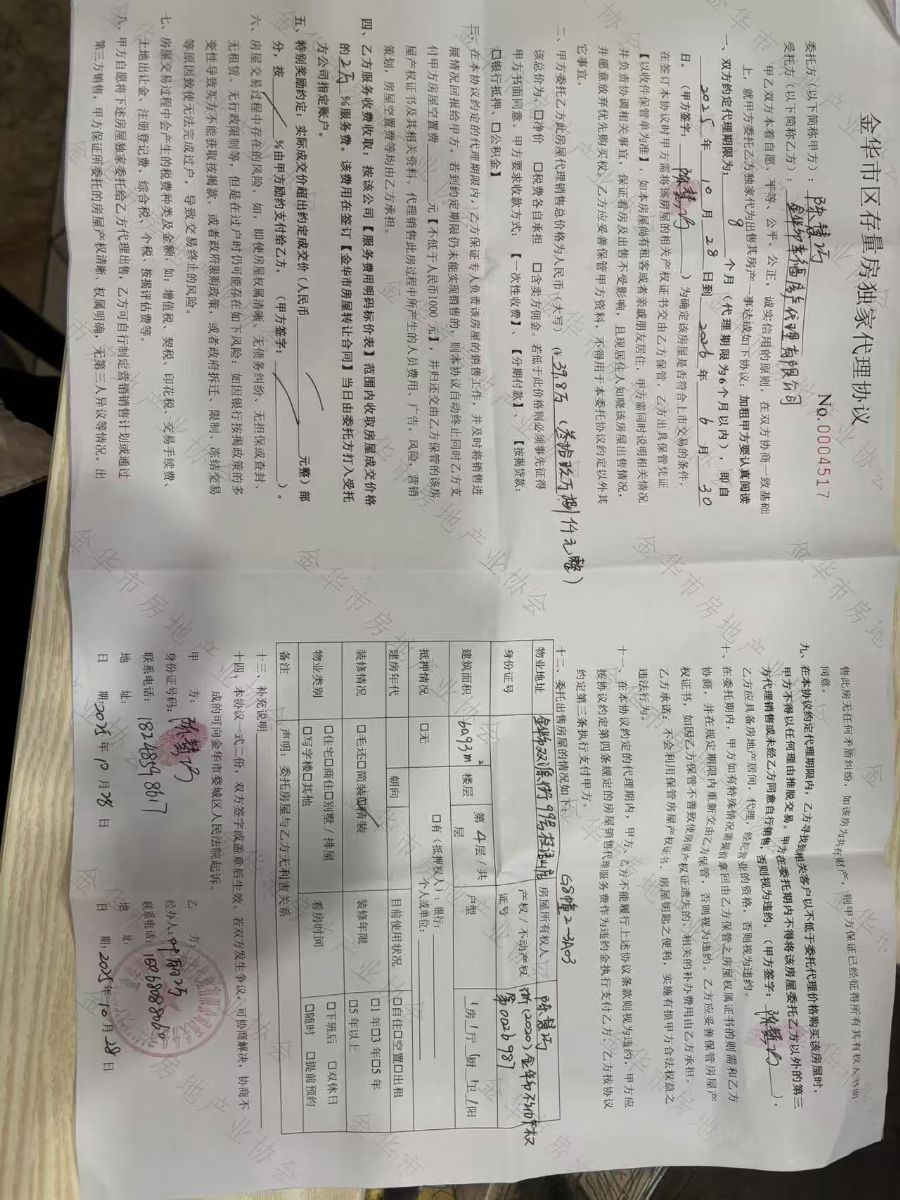 金华市区存量房独家代理协议
No.0004517
委托方(以下简称甲方):
受托方(以下简称乙方):
甲乙双方本着自愿、平等、公平、公正,诚实信用的原则,在双方协商一致基础
上,就甲方委托乙方独家代为出售其房产一事达成如下协议,加粗甲方要认真阅读
一、双方约定代理期限为: 9 个月(代理期限为6个月以内),即自
2025 年 10 月 28 日到 2026 年 6 月 30
日。(甲方签字: )为确定该房屋是否符合上市交易的条件,
在签订本协议时甲方需将该房屋的相关产权证书交由乙方保管,乙方出具保管凭证
【以收件保管单为准】,如本房屋尚有租客或者亲戚朋友居住,甲方需同时说明相关情况
并负责协调相关事宜,保证看房及出售不受影响,且现居住人知晓该房屋出售情况,
并愿意放弃优先购买权。乙方应妥善保管甲方资料,不得用于本委托协议约定以外其
它事宜。
二、甲方委托乙方此房屋代理销售总价格为人民币(大写)(¥ 39.8万 (叁拾玖万捌仟元整)
该总价为:☐净价 ☐税费各自承担 ☐含卖方佣金。若低于此价格则必须事先征得
甲方书面同意。甲方要求收款方式:【一次性收费】、【分期付款】、【按揭贷款:
☐银行抵押、☐公积金】
三、在本协议约定的代理期限内,乙方保证专人负责该房屋的销售工作,并及时将销售进
展情况回报给甲方。若到约定期限仍未能实现销售的,则本协议自动终止同时乙方支
付甲方房屋空置费 元【不低于人民币1000元】,并归还交由乙方保管的该房
屋产权证书及其相关资料。代理销售此房过程中所产生的人员费用、广告,风险,营销
策划,房屋空置费等均由乙方承担。
四、乙方服务收费收取:按该公司【服务费用明码标价表】范围内收取房屋成交价格
的 %服务费。该费用在签订【金华市房屋转让合同】当日由委托方打入受托
方公司指定账户。
五、特别奖励约定:实际成交价超出约定成交价(人民币 元整)部
分,按 %由甲方励约支付给乙方。(甲方签字: )。
六、房屋交易过程中存在的风险,如,即使房屋权属清晰、无债务纠纷、无担保或查封、
无租赁、无行政限制等,但是在过户时仍可能存在如下风险:如因银行按揭政策的多
变性导致买方不能获取按揭款,或者政府限购政策,或者政府拆迁、限制、冻结交易
等原因致使无法完成过户,导致交易终止的风险。
七、房屋交易过程中会产生的税费种类及金额,如:增值税、契税、印花税、交易手续费、
土地出让金、注册登记费、综合税、个税、按揭评估费等。
八、甲方自愿将下述房屋独家委托给乙方代理出售,乙方可自行制定营销销售计划或通过
第三方销售,甲方保证所委托的房屋产权清晰、权属明确,无第三人异议等情况。出
售此房无任何矛盾纠纷,如该房为共有财产,则甲方保证已经征得所有其有权人书面
同意。
九、在本协议约定代理期限内,乙方寻找到相关客户以不低于委托代理价格购买该房屋时,
甲方不得以任何理由推脱交易,甲方在委托期内不得将该房屋委托乙方以外的第三
方代理销售或未经乙方同意自行销售,否则视为违约。(甲方签字: )。
乙方应具备房地产居间,代理,经纪行业的资格,否则视为违约。
十、在委托期内,甲方如有特殊情况需提前拿回由乙方保管之房屋权属证书的则需和乙方
协商,并在规定期限内重新交由乙方保管,否则视为违约。乙方应妥善保管房屋产
权证书,如因乙方保管不善致使房屋产权证遗失的,相关的补办费用由乙方承担。
乙方承诺:不会利用保管房屋产权证书、房屋钥匙之便利,实施有损甲方合法权益之
违法行为。
十一、在本协议约定的代理期内,甲方、乙方不能履行上述协议条款则视为违约,甲方应
按协议约定第四条规定的房屋销售代理服务费作为违约金执行支付乙方、乙方按协议
约定第三条执行支付甲方。
十二、委托出售房屋的情况如下: G8幢2-3A03
物业地址 房屋所有权人
身份证号 产权/不动产权证号 浙(2020)金华市不动产权第0026987
建筑面积 楼层 第 4 层/共 层 户型 1房 1厅 1厨 1卫 1阳
抵押情况 ☐无 ☐有(抵押权人):银行: 个人或单位:
建房年代 朝向 目前使用状况 ☐自住☐空置☐出租
装修情况 ☐毛还☐简装☑精装 装修年限 ☐1年☐3年☐5年 ☐5年以上
物业类别 ☐住宅☐商住☐别墅/排屋 ☐写字楼☐其他 看房时间 ☐下班后 ☐双休日 ☐随时 ☐提前预约
备注 声明:委托房屋与乙方无利害关系
十三、补充说明
十四、本协议一式二份,双方签字或盖章后生效,若双方发生争议,可协商解决,协商不
成的可向金华市婺城区人民法院起诉。
甲 方: 乙 方:
身份证号码: 经办人:
联系电话:18248598617 联系电话:
地 址: 地 址:
日 期:2025年10月28日 日 期:2025年10月28日